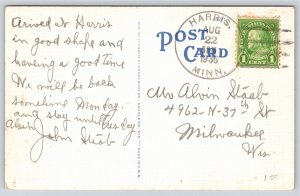 Arived at Harris
in good shape and
haveing a good time
We will be back
sometime Monday.
and stay until Tuesday
Alvin
John Staab
POST
CARD
HARRIS,
AUG
22
1936
MINN.
1 CENT 1
Mr Alvin Staab
4962-N-37th St
Milwaukee
Wis.
1.00